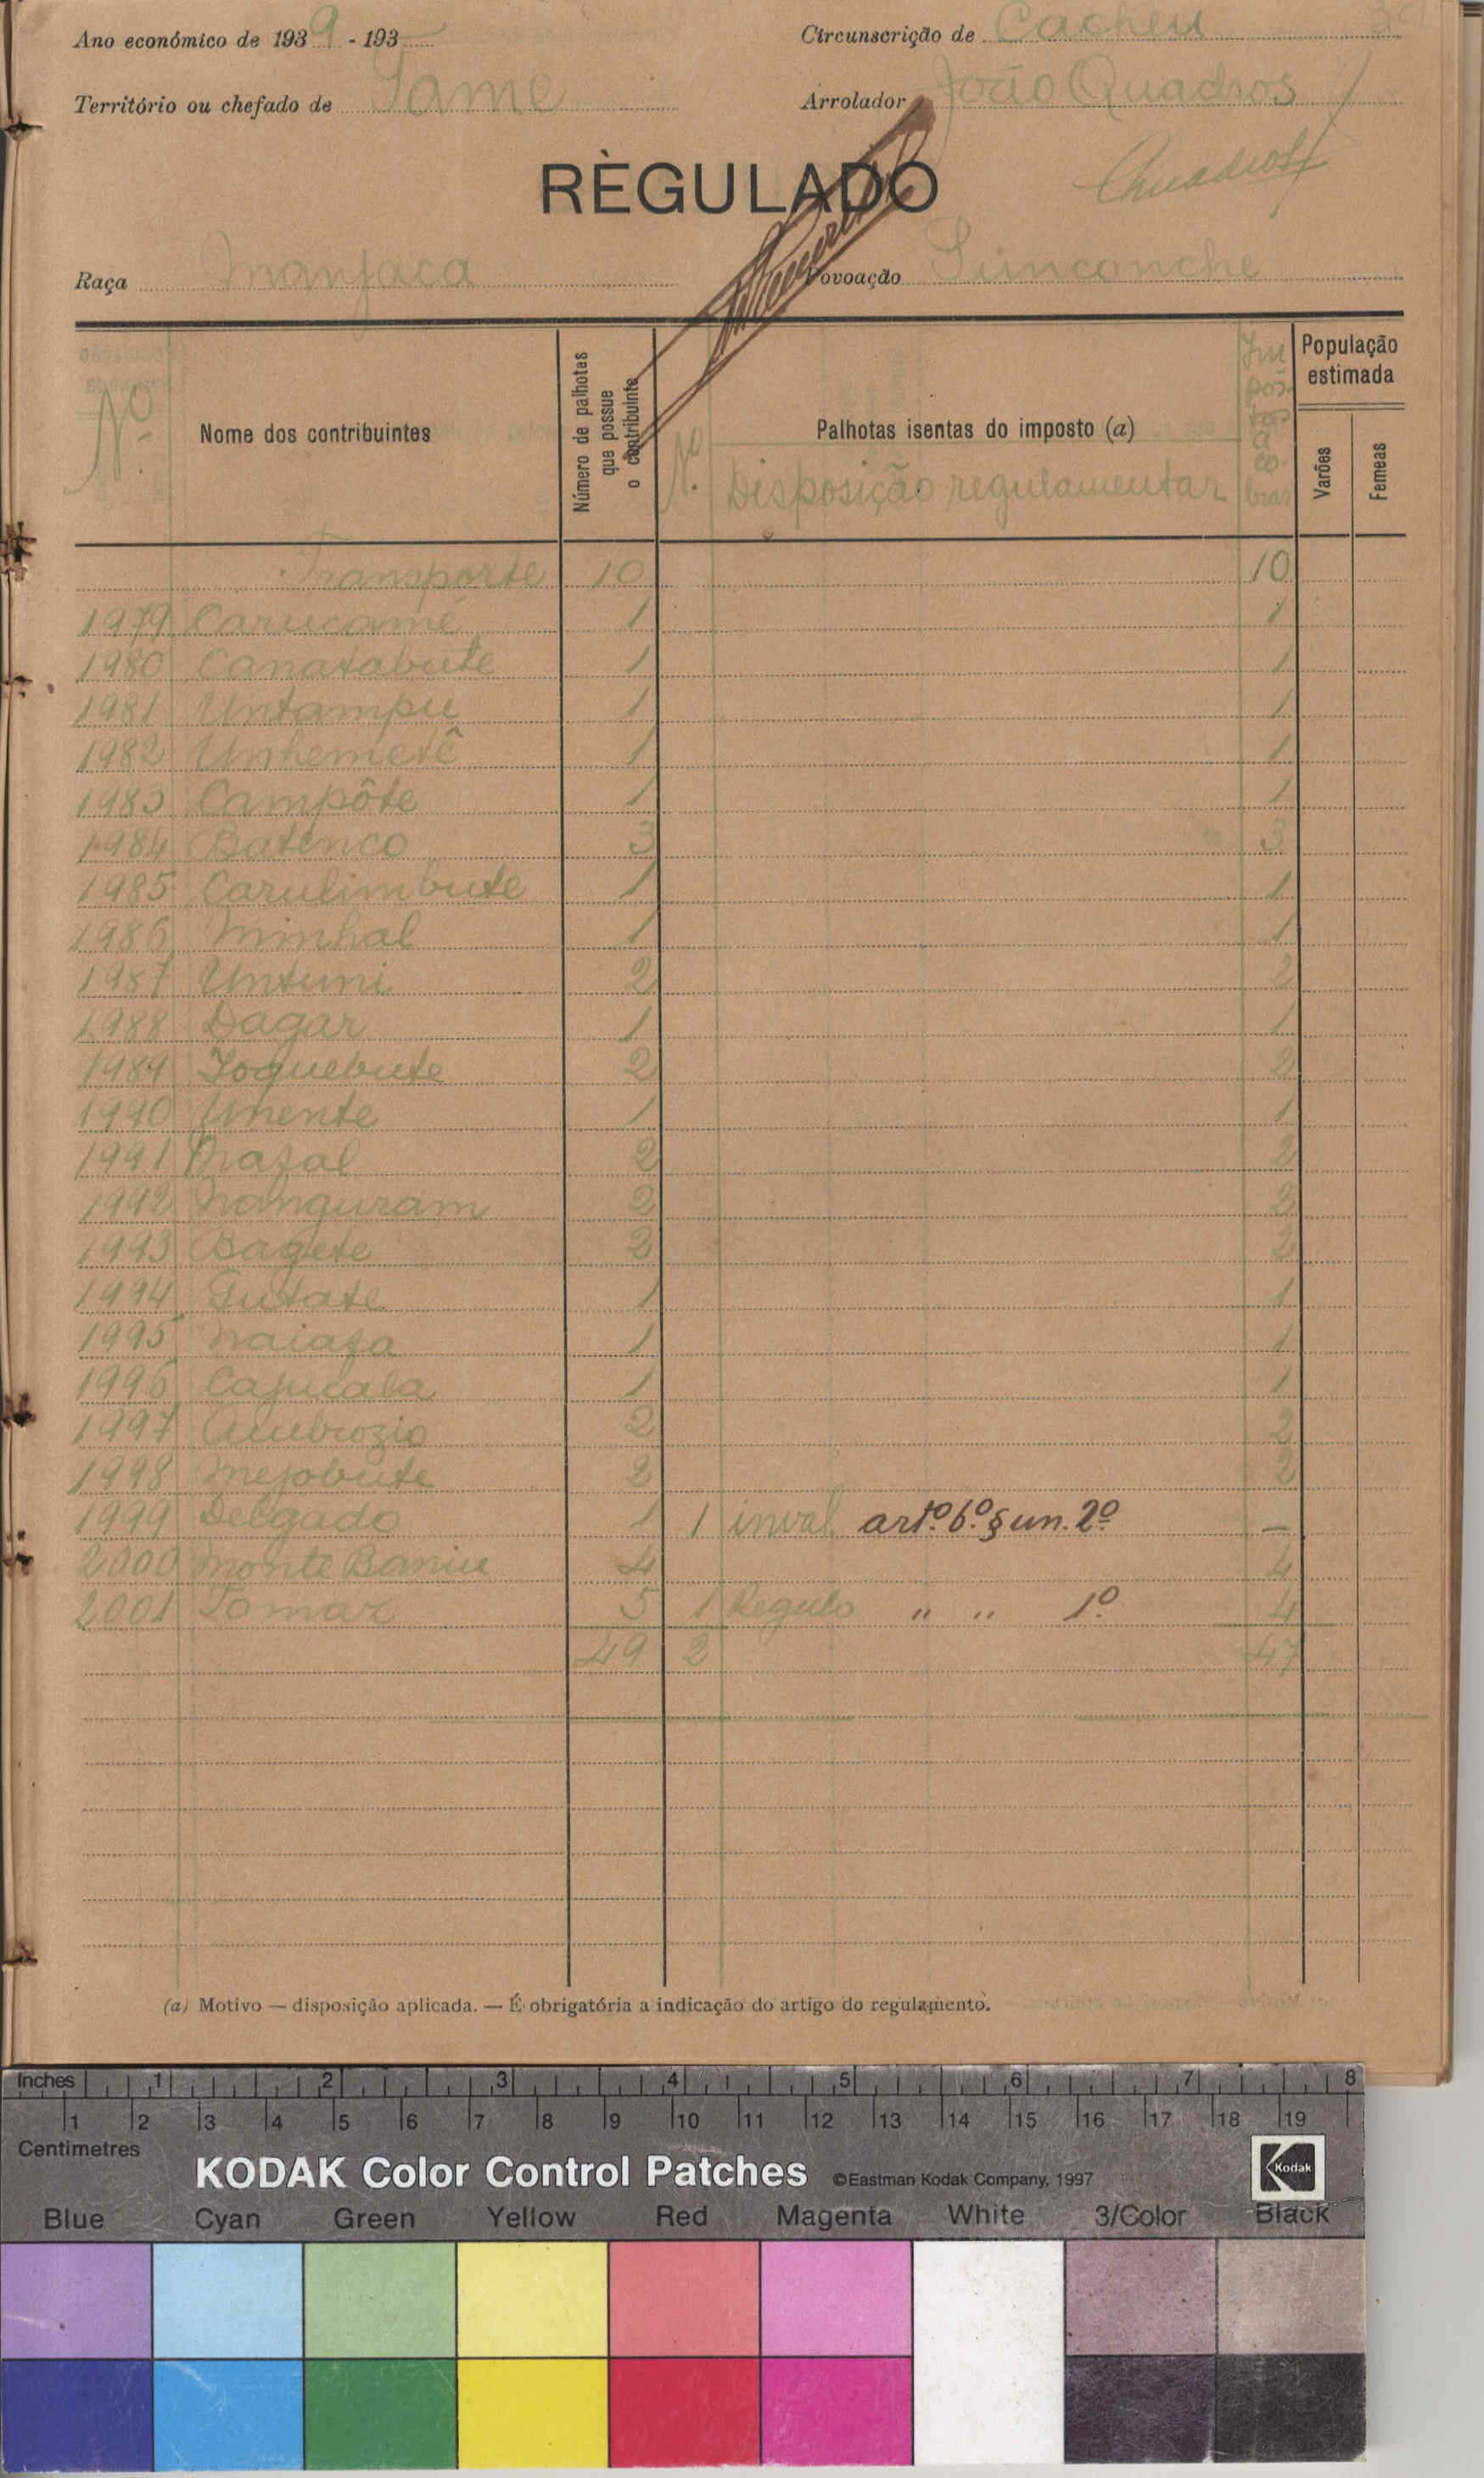 Ano económico de 1939 - 193
Circunscrição de Cacheu
Território ou chefado de Tame
Arrolador João Quadros
RÈGULADO
Quadros
Raça Manjaca
Povoação
Nº
Nome dos contribuintes
Número de palhotas que possue o contribuinte
Nº
Palhotas isentas do imposto (a)
Disposição regulamentar
Impostos a cobrar
População estimada
Varões
Femeas
Transporte 10 10
1979 Carucamé 1 1
1980 Canatabute 1 1
1981 Untampu 1 1
1982 Unhemetê 1 1
1983 Campôte 1 1
1984 Batenco 3 3
1985 Carulimbute 1 1
1986 Minhal 1 1
1987 Untuni 2 2
1988 Dagar 1 1
1989 Joquebute 2 2
1990 Unente 1 1
1991 2 2
1992 Nanguram 2 2
1993 Bagete 2 2
1994 1 1
1995 1 1
1996 Cajucala 1 1
1997 Ambrozio 2 2
1998 Mejobute 2 2
1999 Delgado 1 1 inval artº. 6º. § un. 2º —
2000 Monte Baniu 4 4
2001 Tomaz 5 1 Regulo " " 1º. 4
49 2 47
(a) Motivo — disposição aplicada. — É obrigatória a indicação do artigo do regulamento.
Inches 1 2 3 4 5 6 7 8
1 2 3 4 5 6 7 8 9 10 11 12 13 14 15 16 17 18 19
Centimetres
KODAK Color Control Patches ©Eastman Kodak Company, 1997 Kodak
Blue Cyan Green Yellow Red Magenta White 3/Color Black